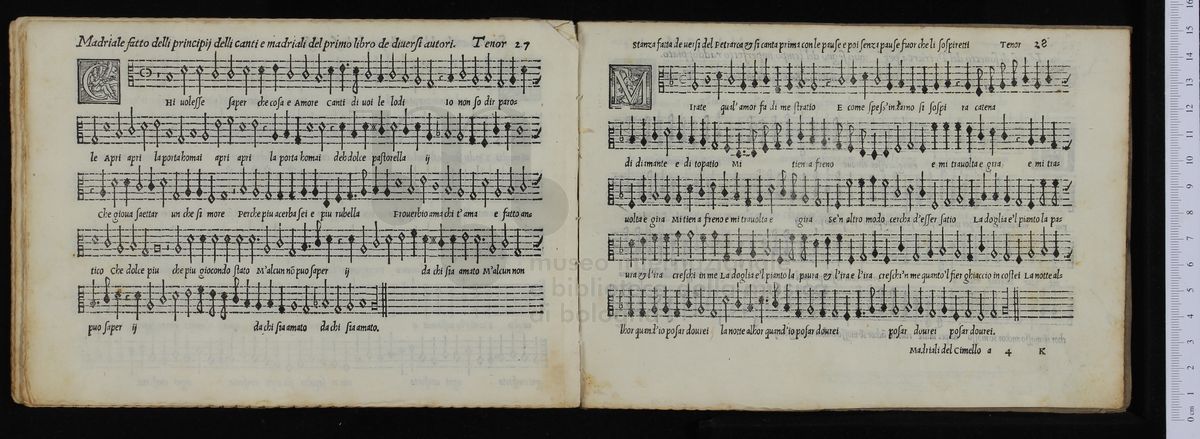 Madriale fatto delli principij delli canti e madriali del primo libro de diuersi autori. Tenor 27
C
Hi uolesse saper che cosa e Amore canti di uoi le lodi Io non so dir paros
le Apri apri la porta homai apri apri la porta homai deh dolce pastorella ij
Che gioua saettar un che si more Perche piu acerba sei e piu rubella Prouerbio ama chi t'ama e fatto ans
tico Che dolce piu che piu giocondo stato M'alcun nõ puo saper ij da chi sia amato M'alcun non
puo saper ij da chi sia amato da chi sia amato.
Stanza fatta de uersi del Petrarca & si canta prima con le pause e poi senza pause fuor che li sospiretti Tenor 28
M
Irate qual'amor fa di me stratio E come spess'indarno si sospi ra catena
di dimante e di topatio Mi tien a freno e mi trauolta e gira e mi tras
uolta e gira Mi tien a freno e mi trauolta e gira Se'n altro modo cercha d'esser satio La doglia e'l pianto la pas
ura & l'ira creschi in me La doglia e'l pianto la paura & l'ira e l'ira creschi'n me quanto'l fier ghiaccio in costei La notte als
lhor quand'io posar dourei la notte alhor quand'io posar dourei posar dourei posar dourei.
Madriali del Cimello a 4 K
museo
biblioteca
di bolo